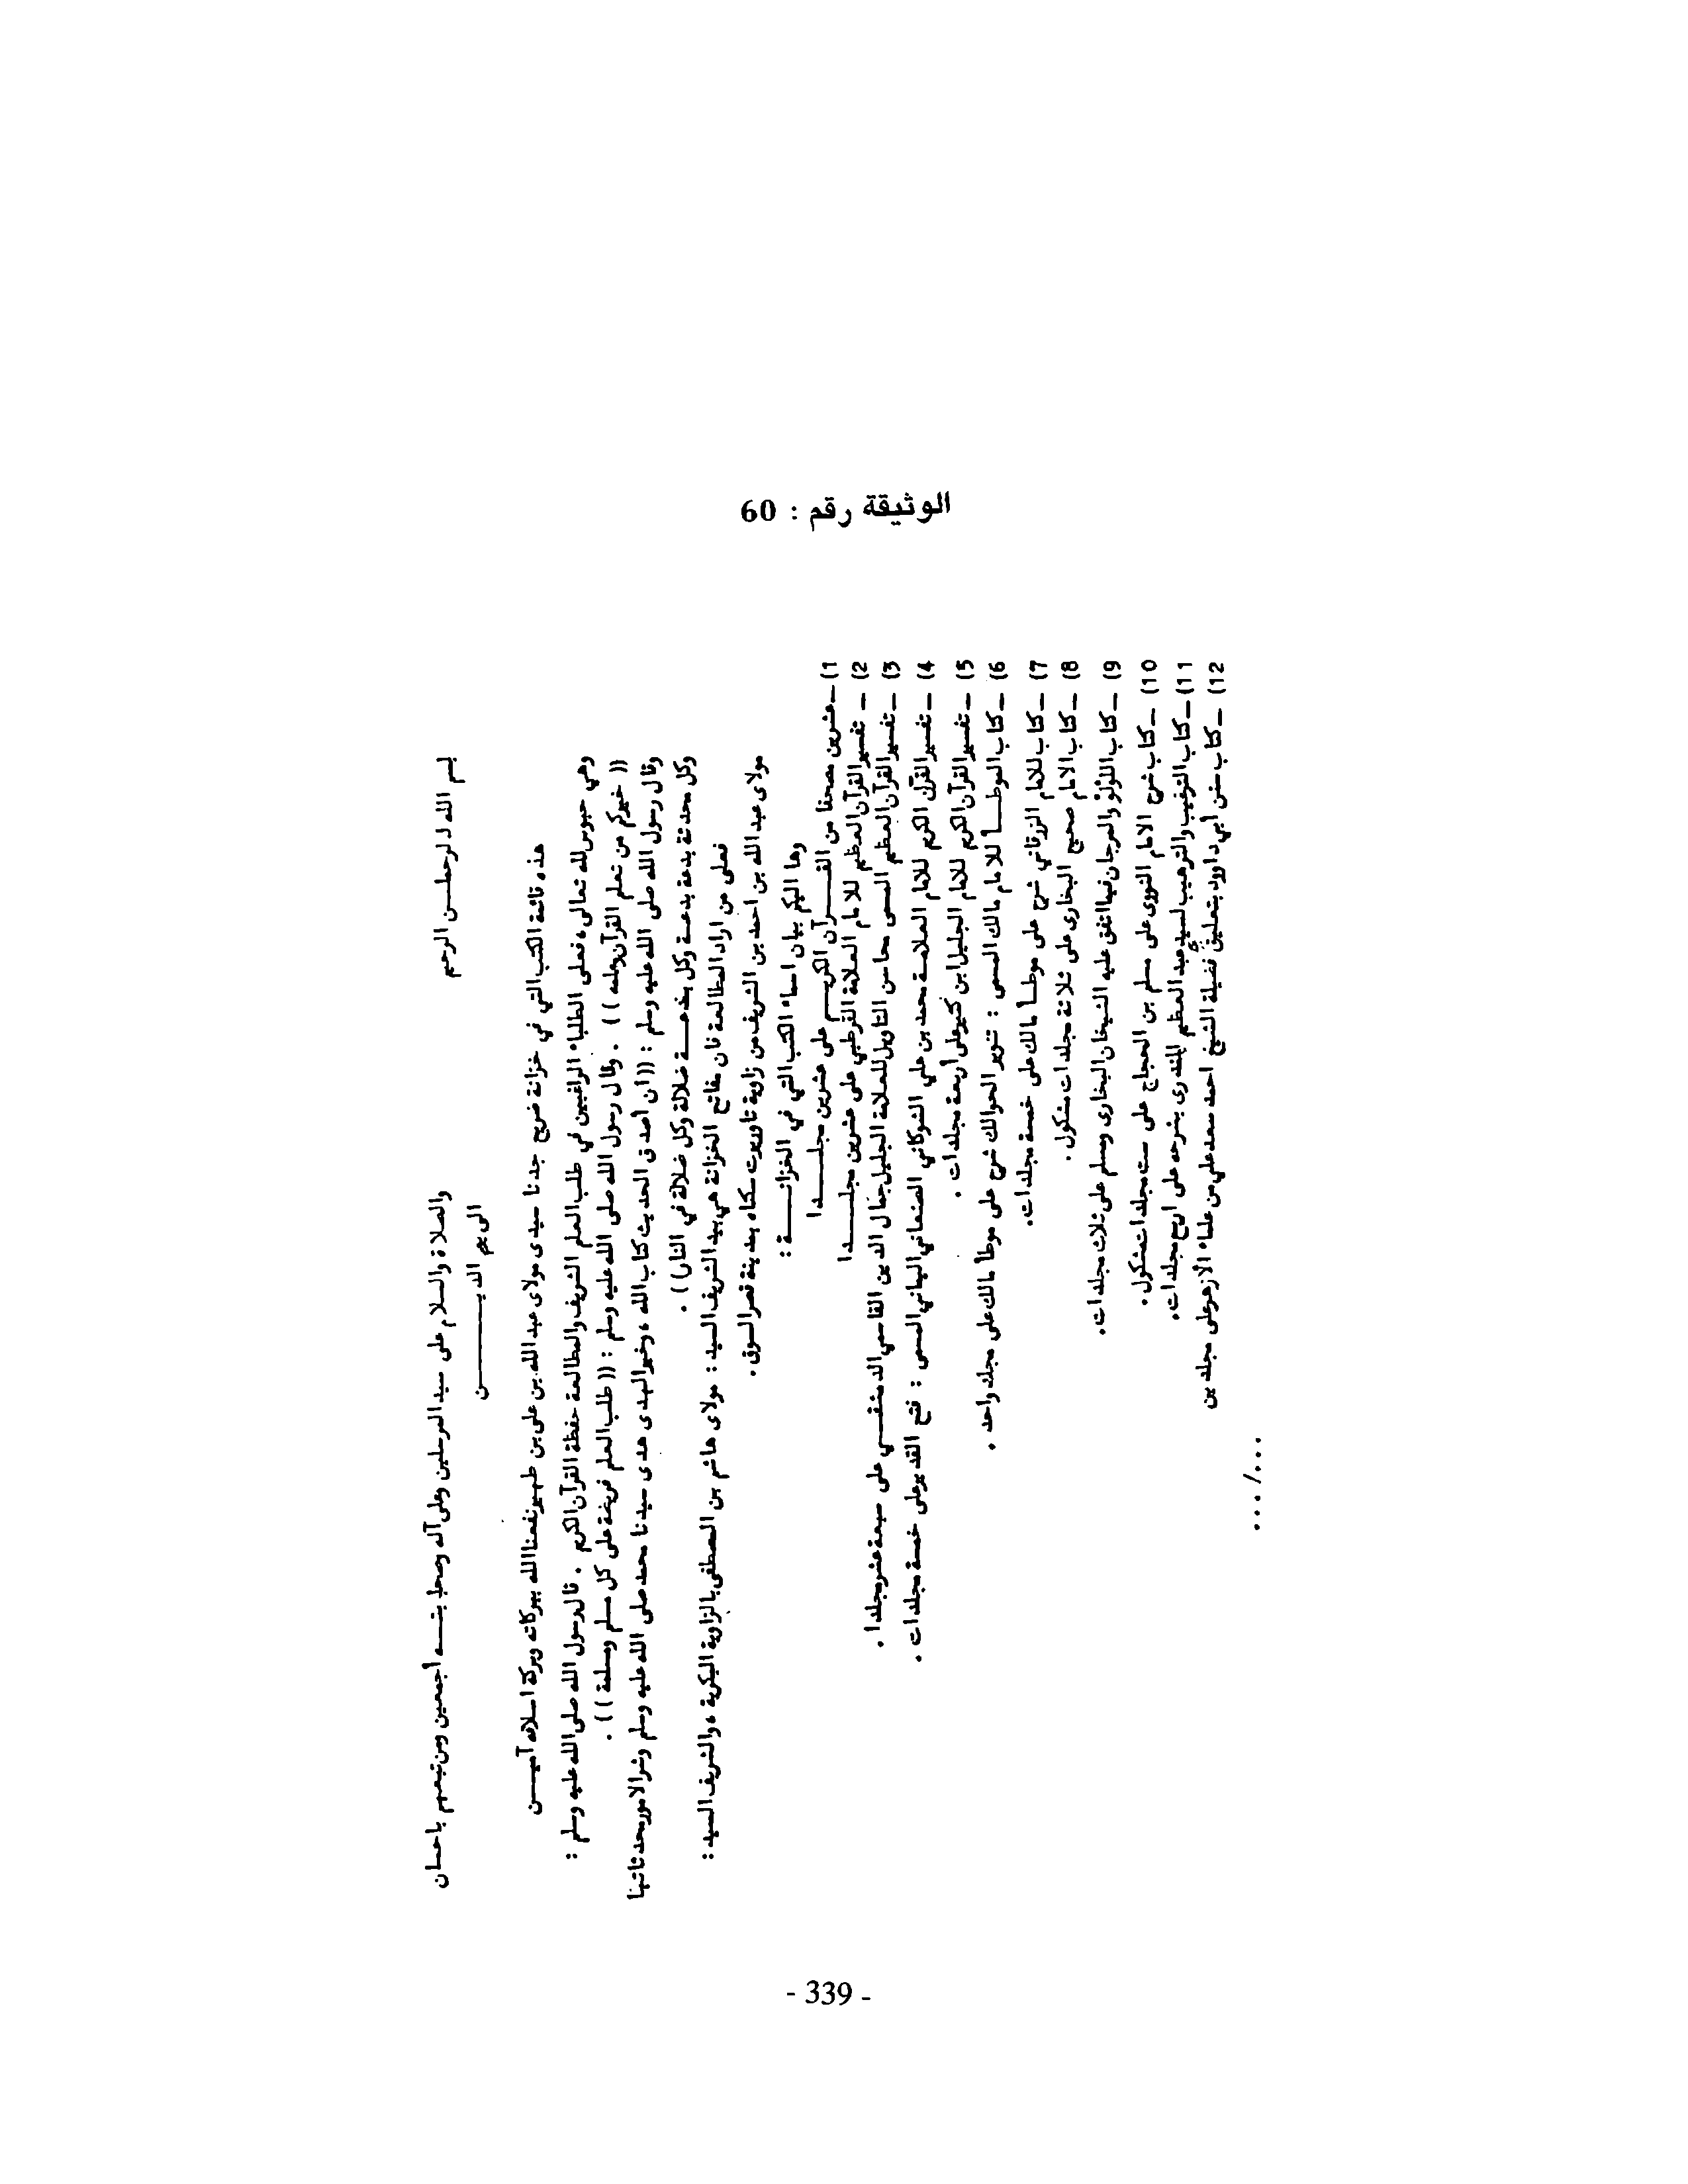 الوثيقة رقم : 60
بسم الله الرحمـــن الرحيم
والصلاة والسلام على سيد المرسلين وعلى آله وصحابتـــه أجمعين ومن تبعهم باحسان
الى يوم الديـــــــن
هذه قائمة الكتب التي في خزانة ضريح جدنا سيدى مولاى عبد الله بن على بن طهير نفعنا الله ببركاته وبركة اسلافه آميـــن
وهي حبوس لله تعالى ، فعلى الطلباء الراغبين في طلب العلم الشريف والمطالعة حفظة القرآن الكريم . قال رسول الله صلى الله عليه وسلم :
(( خيركم من تعلم القرآن وعلمه )) . وقال رسول الله صلى الله عليه وسلم : (( طلب العلم فريضة على كل مسلم ومسلمة )) .
وقال رسول الله صلى الله عليه وسلم : (( ان أصدق الحديث كتاب الله ، وخير الهدى هدى سيدنا محمد صلى الله عليه وسلم وشر الامور محدثاتها
وكل محدثة بدعة بدعـــة وكل بدعـــة ضلالة وكل ضلالة في النار )) .
فعلى من اراد المطالعة فان مفاتح الخزانة هي بيد الشريف السيد : مولاى هاشم بن المصطفى بالزاوية البكرية ، والشريف السيد :
مولاى عبد الله بن احمد بن الشريف من زاوية تاوريرت سكناه بمدينة قصر السوق .
وها اليكم بيان اسماء الكتب التي في الخزانـــــة :
1) ـ عشرين مصحفا من القـــرآن الكريـــم على عشرين مجلـــــدا
2) ـ تفسير القرآن العظيم للامام العلامة القرطبي على عشرين مجلـــــدا
3) ـ تفسير القرآن العظيم المسمى محاسن التاويل للعلامة الجليل جمال الدين القاسمي الدمشقـــي على سبعة عشر مجلدا .
4) ـ تفسير القرآن الكريم للامام العلامـة محمد بن علي الشوكاني الصنعاني اليماني المسمى : فتح القدير على خمسة مجلدات .
5) ـ تفسير القرآن الكريم للامام الجليل ابن كثير على أربعة مجلدات .
6) ـ كتاب الموطـــأ للامام مالك المسمى : تنوير الحوالك شرح على موطأ مالك على مجلد واحد .
7) ـ كتاب للامام الزرقاني شرح على موطـأ مالك على خمسة مجلدات .
8) ـ كتاب الامام صحيح البخارى على ثلاثة مجلدات مشكول .
9) ـ كتاب اللؤلؤ والمرجان فيما اتفق عليه الشيخان البخارى ومسلم على ثلاث مجلدات .
10) ـ كتاب شرح الامام النووى على مسلم بن الحجاج على ست مجلدات مشكول .
11) ـ كتاب الترغيب والترهيب لسيدى عبد العظيم المنذرى بشرحه على اربع مجلدات .
12) ـ كتاب سنن أبي داوود بتعليق فضيلة الشيخ احمد سعد علي من علماء الازهر على مجلدين
.../...
- 339 -